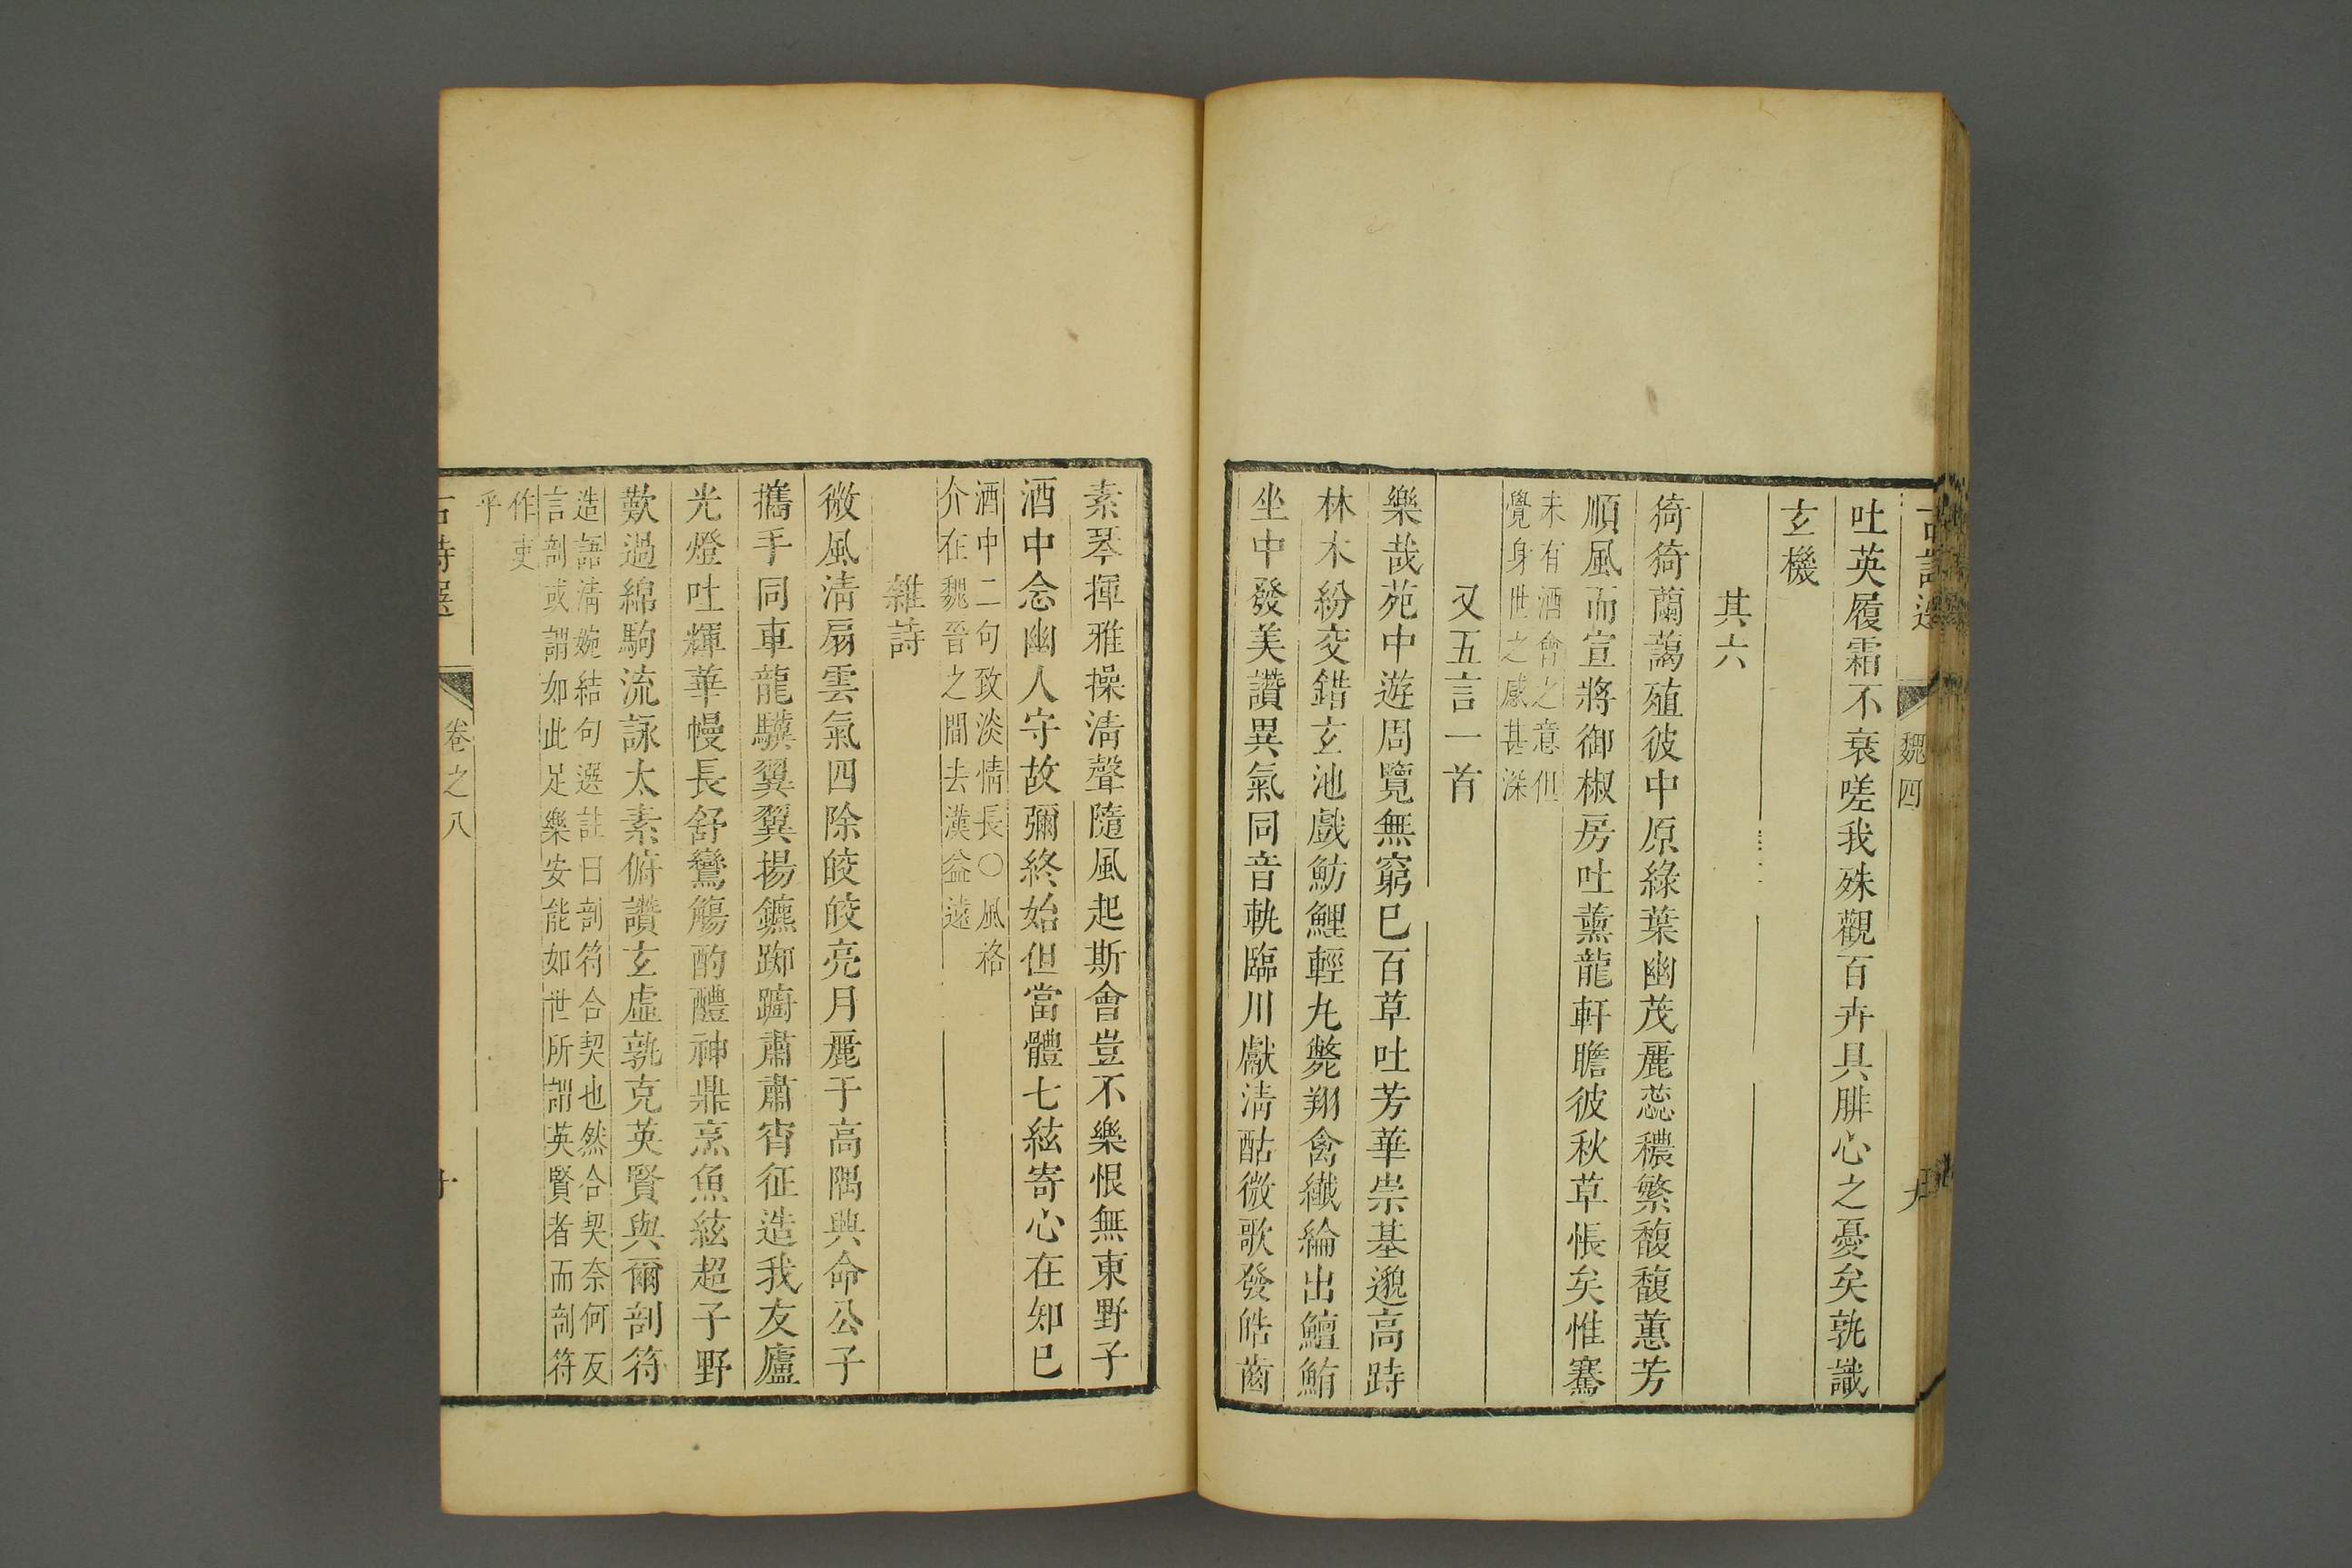 魏四
吐英履霜不衰嗟我殊觀百卉具腓心之憂矣孰識
玄機
其六
猗猗蘭藹殖彼中原綠葉幽茂麗蕊穠繁馥馥蕙芳
順風而宣將御椒房吐薰龍軒瞻彼秋草悵矣惟騫
未有酒會之意但
覺身世之感甚深
又五言一首
樂哉苑中遊周覽無窮已百草吐芳華崇基邈高跱
林木紛交錯玄池戲魴鯉輕丸斃翔禽纖綸出鱣鮪
坐中發美讚異氣同音軌臨川獻清酤微歌發皓齒
素琴揮雅操清聲隨風起斯會豈不樂恨無東野子
酒中念幽人守故彌終始但當體七絃寄心在知已
酒中二句致淡情長〇風格
介在魏晉之間去漢益遠
雜詩
微風清扇雲氣四除皎皎亮月麗于高隅興命公子
攜手同車龍驥翼翼揚鑣踟躕肅肅宵征造我友廬
光燈吐輝華幔長舒鸞觴酌醴神鼎烹魚絃超子野
歎過綿駒流詠太素俯讚玄虛孰克英賢與爾剖符
造語清婉結句選註曰剖符合契也然合契奈何反
言剖或謂如此足樂安能如世所謂英賢者而剖符
作吏
乎
卷之八